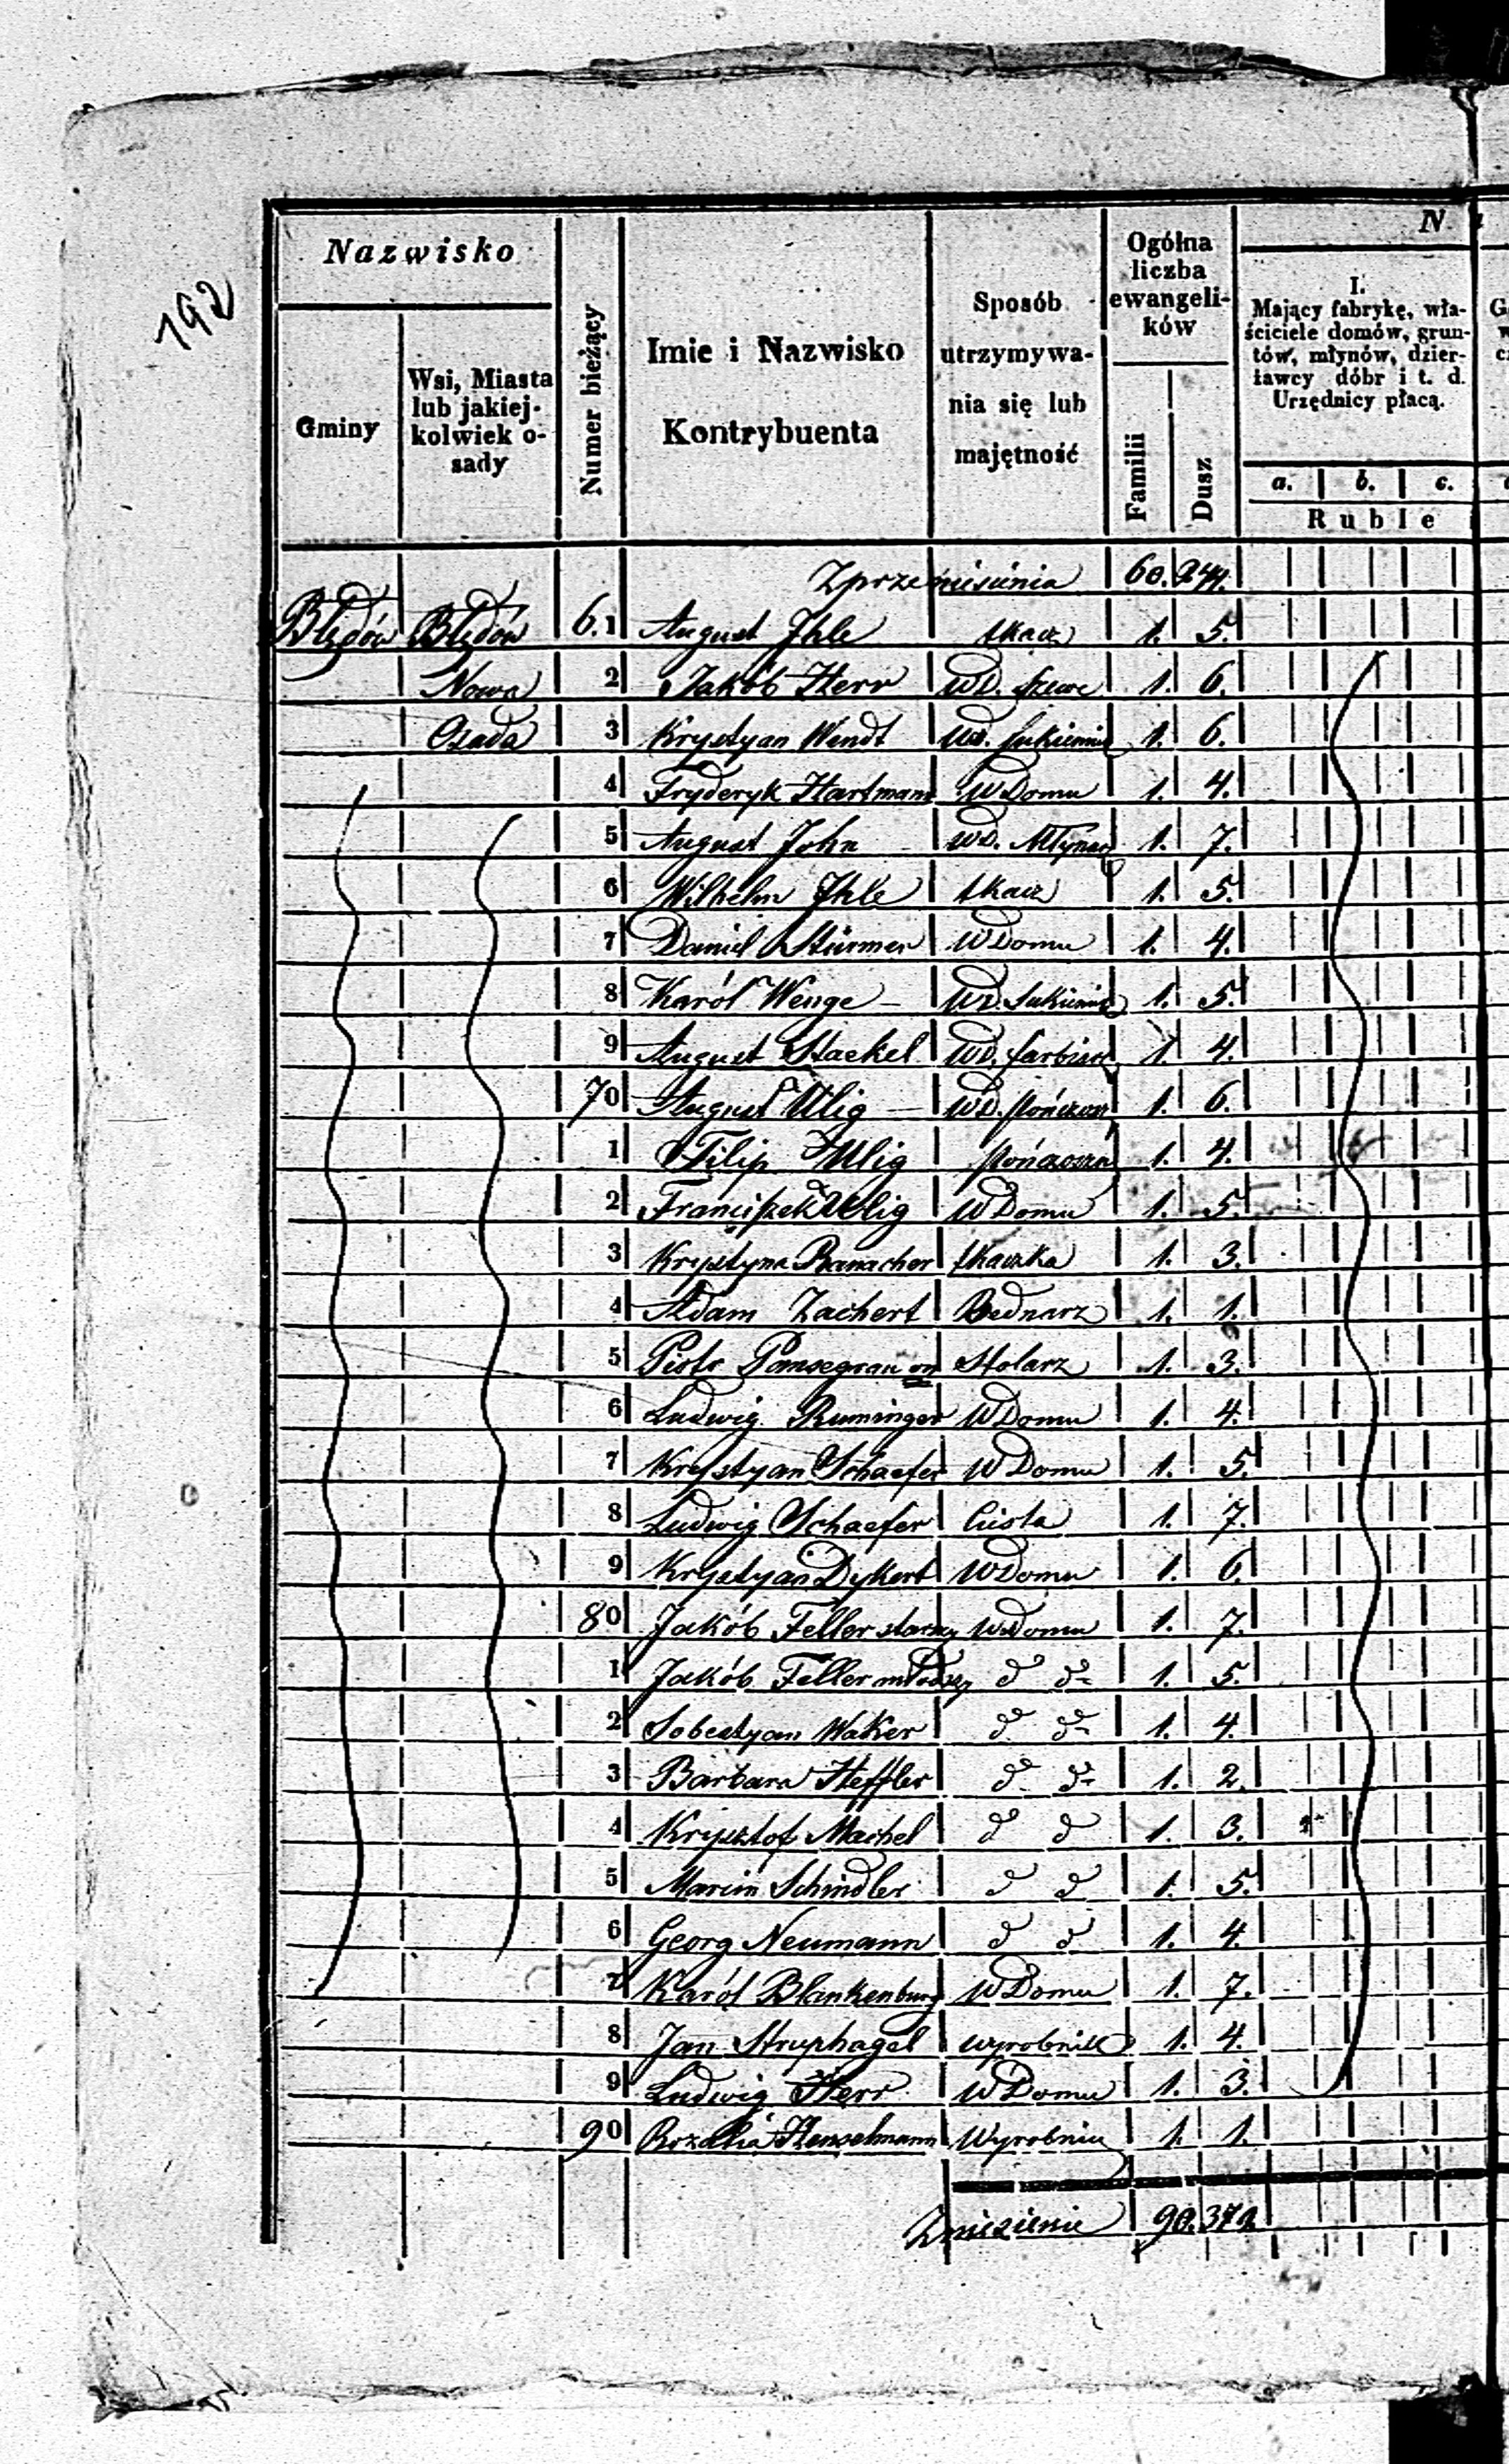 192
Nazwisko
Gminy
Wsi, Miasta
lub jakiej-
kolwiek o-
sady
Numer bieżący
Imie i Nazwisko
Kontrybuenta
Sposób
utrzymywa-
nia się lub
majętność
Ogólna
liczba
ewangeli-
ków
Familii
Dusz
N
I.
Mający fabrykę, wła-
ściciele domów, grun-
tów, młynów, dzier-
żawcy dóbr i t. d.
Urzędnicy płacą.
a. b. c.
Ruble
Zprzeniesienia 60. 244.
Błędów Błędów 6.1 August Ihle tkacz 1. 5.
Nowa 2 Jakób Herr WD. Szewc 1. 6.
Osada 3 Krystyan Wendt WD. Sukiennik 1. 6.
4 Fryderyk Hartmann W Domu 1. 4.
5 August John WD. Młynarz 1. 7.
6 Wilhelm Ihle tkacz 1. 5.
7 Daniel Stürmer W Domu 1. 4.
8 Karól Wenge – WD. Sukiennik 1. 5.
9 August Haekel WD. farbiarz 1. 4.
70 August Ulig – WD. pończosz 1. 6.
1 Filip Ulig pończoszn 1. 4.
2 Franciszek Ulig W Domu 1. 5.
3 Krystyna Banacher tkaczka 1. 3.
4 Adam Zachert Bednarz 1. 1.
5 Piotr Pansegrau Stolarz 1. 3.
6 Ludwig Ruminger W Domu 1. 4.
7 Krystyan Schaefer W Domu 1. 5.
8 Ludwig Schaefer Cieśla 1. 7.
9 Krystyan Dykert W Domu 1. 6.
80 Jakób Feller starszy W Domu 1. 7.
1 Jakób Feller młodszy do do 1. 5.
2 Sobestyan Waker do do 1. 4.
3 Barbara Heffler do do 1. 2.
4 Krysztof Machel do d 1. 3.
5 Marcin Schindler d d 1. 5.
6 Georg Neumann d d 1. 4.
7 Karól Blankenburg W Domu 1. 7.
8 Jan Struphagel wyrobnik 1. 4.
9 Ludwig Herr W Domu 1. 3.
90 Rozalia Henselmann Wyrobnic 1. 1.
Zniesienie 90. 379.